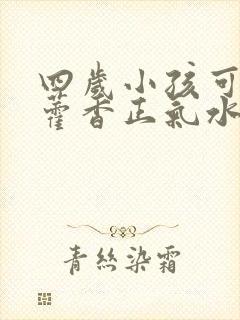 四歲小孩可
藿香正氣水
青絲染霜